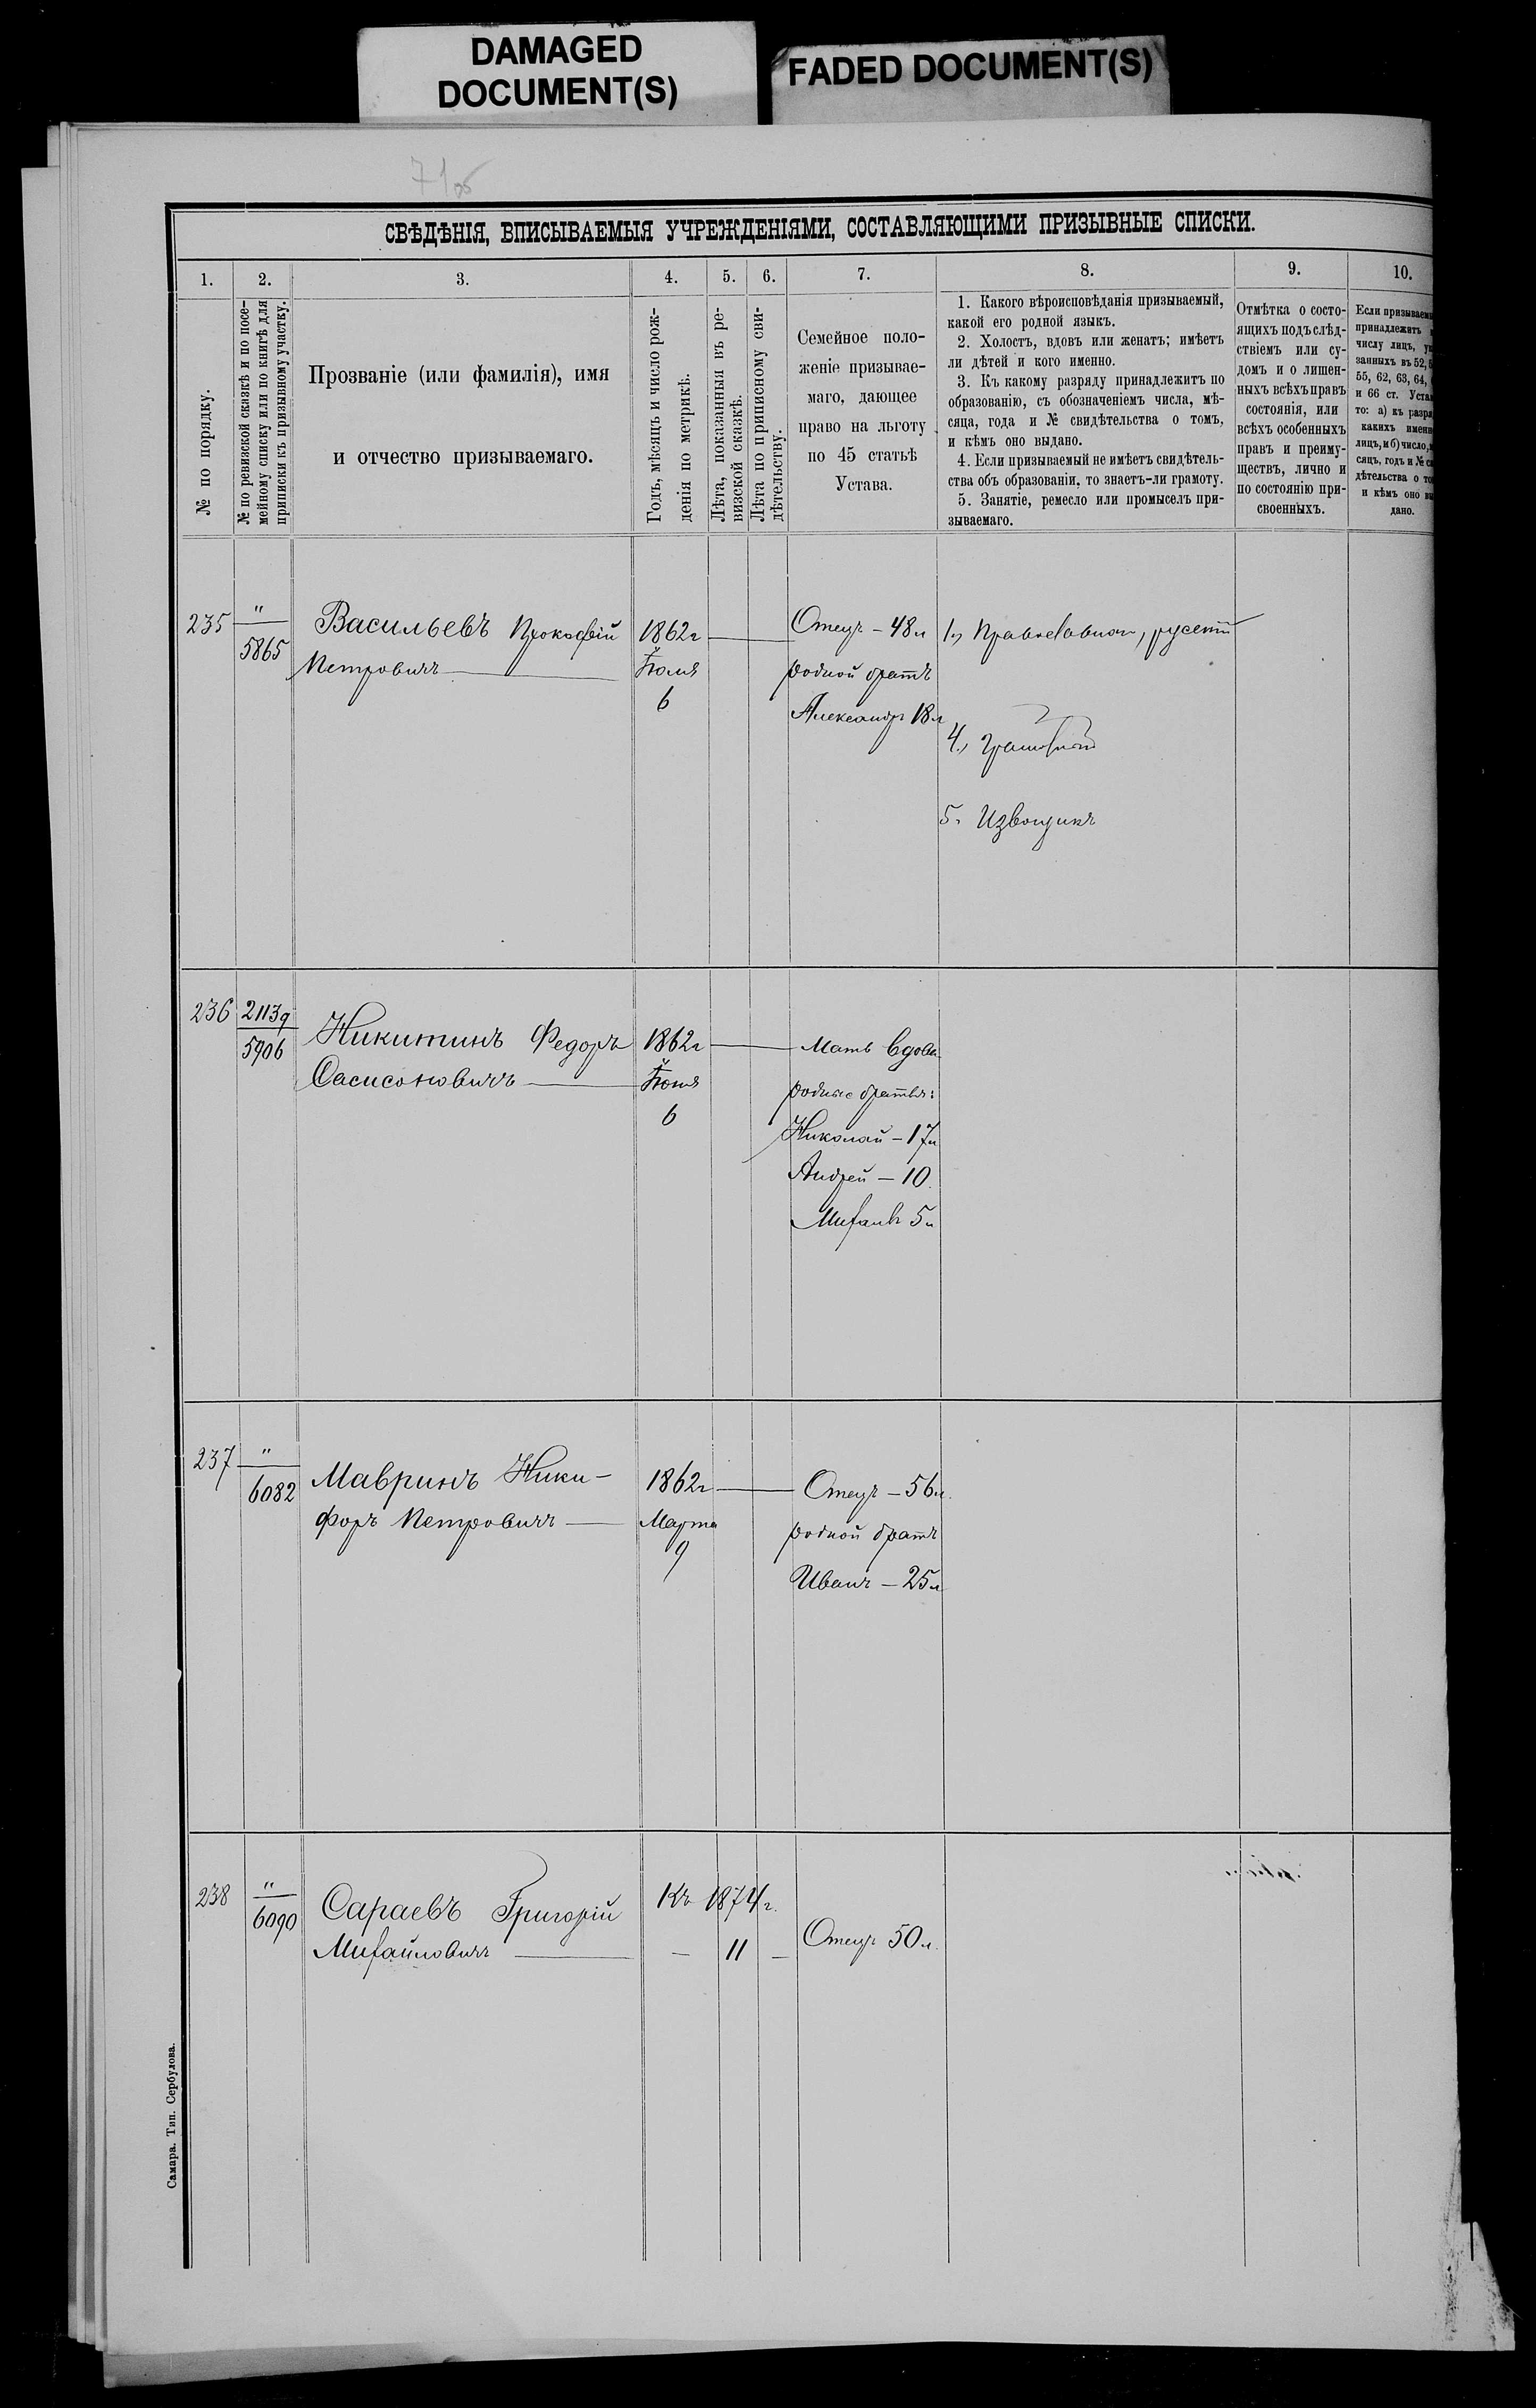 DAMAGED
DOCUMENT(S)
FADED DOCUMENT(S)
СВѢДѢНІЯ, ВПИСЫВАЕМЫЯ УЧРЕЖДЕНІЯМИ, СОСТАВЛЯЮЩИМИ ПРИЗЫВНЫЕ СПИСКИ.
1.
2.
3.
4.
5.
6.
7.
8.
9.
10.
№ по порядку.
№ по ревизской сказкѣ и по посе-
мейному списку или по книгѣ для
приписки къ призывному участку.
Прозваніе (или фамилія), имя
и отчество призываемаго.
Годъ, мѣсяцъ и число рож-
денія по метрикѣ.
Лѣта, показанныя въ ре-
визской сказкѣ.
Лѣта по приписному сви-
дѣтельству.
Семейное поло-
женіе призывае-
маго, дающее
право на льготу
по 45 статьѣ
Устава.
1. Какого вѣроисповѣданія призываемый,
какой его родной языкъ.
2. Холостъ, вдовъ или женатъ; имѣетъ
ли дѣтей и кого именно.
3. Къ какому разряду принадлежитъ по
образованію, съ обозначеніемъ числа, мѣ-
сяца, года и № свидѣтельства о томъ,
и кѣмъ оно выдано.
4. Если призываемый не имѣетъ свидѣтель-
ства объ образованіи, то знаетъ-ли грамоту.
5. Занятіе, ремесло или промыселъ при-
зываемаго.
Отмѣтка о состо-
ящихъ подъ слѣд-
ствіемъ или су-
домъ и о лишен-
ныхъ всѣхъ правъ
состоянія, или
всѣхъ особенныхъ
правъ и преиму-
ществъ, лично и
по состоянію при-
своенныхъ.
Если призываем
принадлежитъ
числу лицъ, ук
занныхъ въ 52,
55, 62, 63, 64,
и 66 ст. Уста
то: а) къ разря
какихъ именн
лицъ, и б) число,
сяцъ, годъ и № с
дѣтельства о то
и кѣмъ оно вы
дано.
235
"
5865
Васильевъ Прокофій
Петровичъ
1862г
Іюля
6
Отецъ – 48л
родной братъ
Александръ 18л
1., Православнаго, русскій
4., грамотный
5. Извощикъ
236
2113
5906
Никитинъ Федоръ
1862г
Іюня
6
Мать вдова
родные братья:
Николай – 17л
Андрей – 10
Михаилъ 5л
237
"
6082
Мавринъ Ники-
форъ Петровичъ
1862г
Марта
9
Отецъ – 56л.
родной братъ
Иванъ – 25л
238
"
6090
Сараевъ Григорій
Михайловичъ
Къ 1874г.
– 11 –
Отецъ 50л.
Самара. Тип. Сербулова.